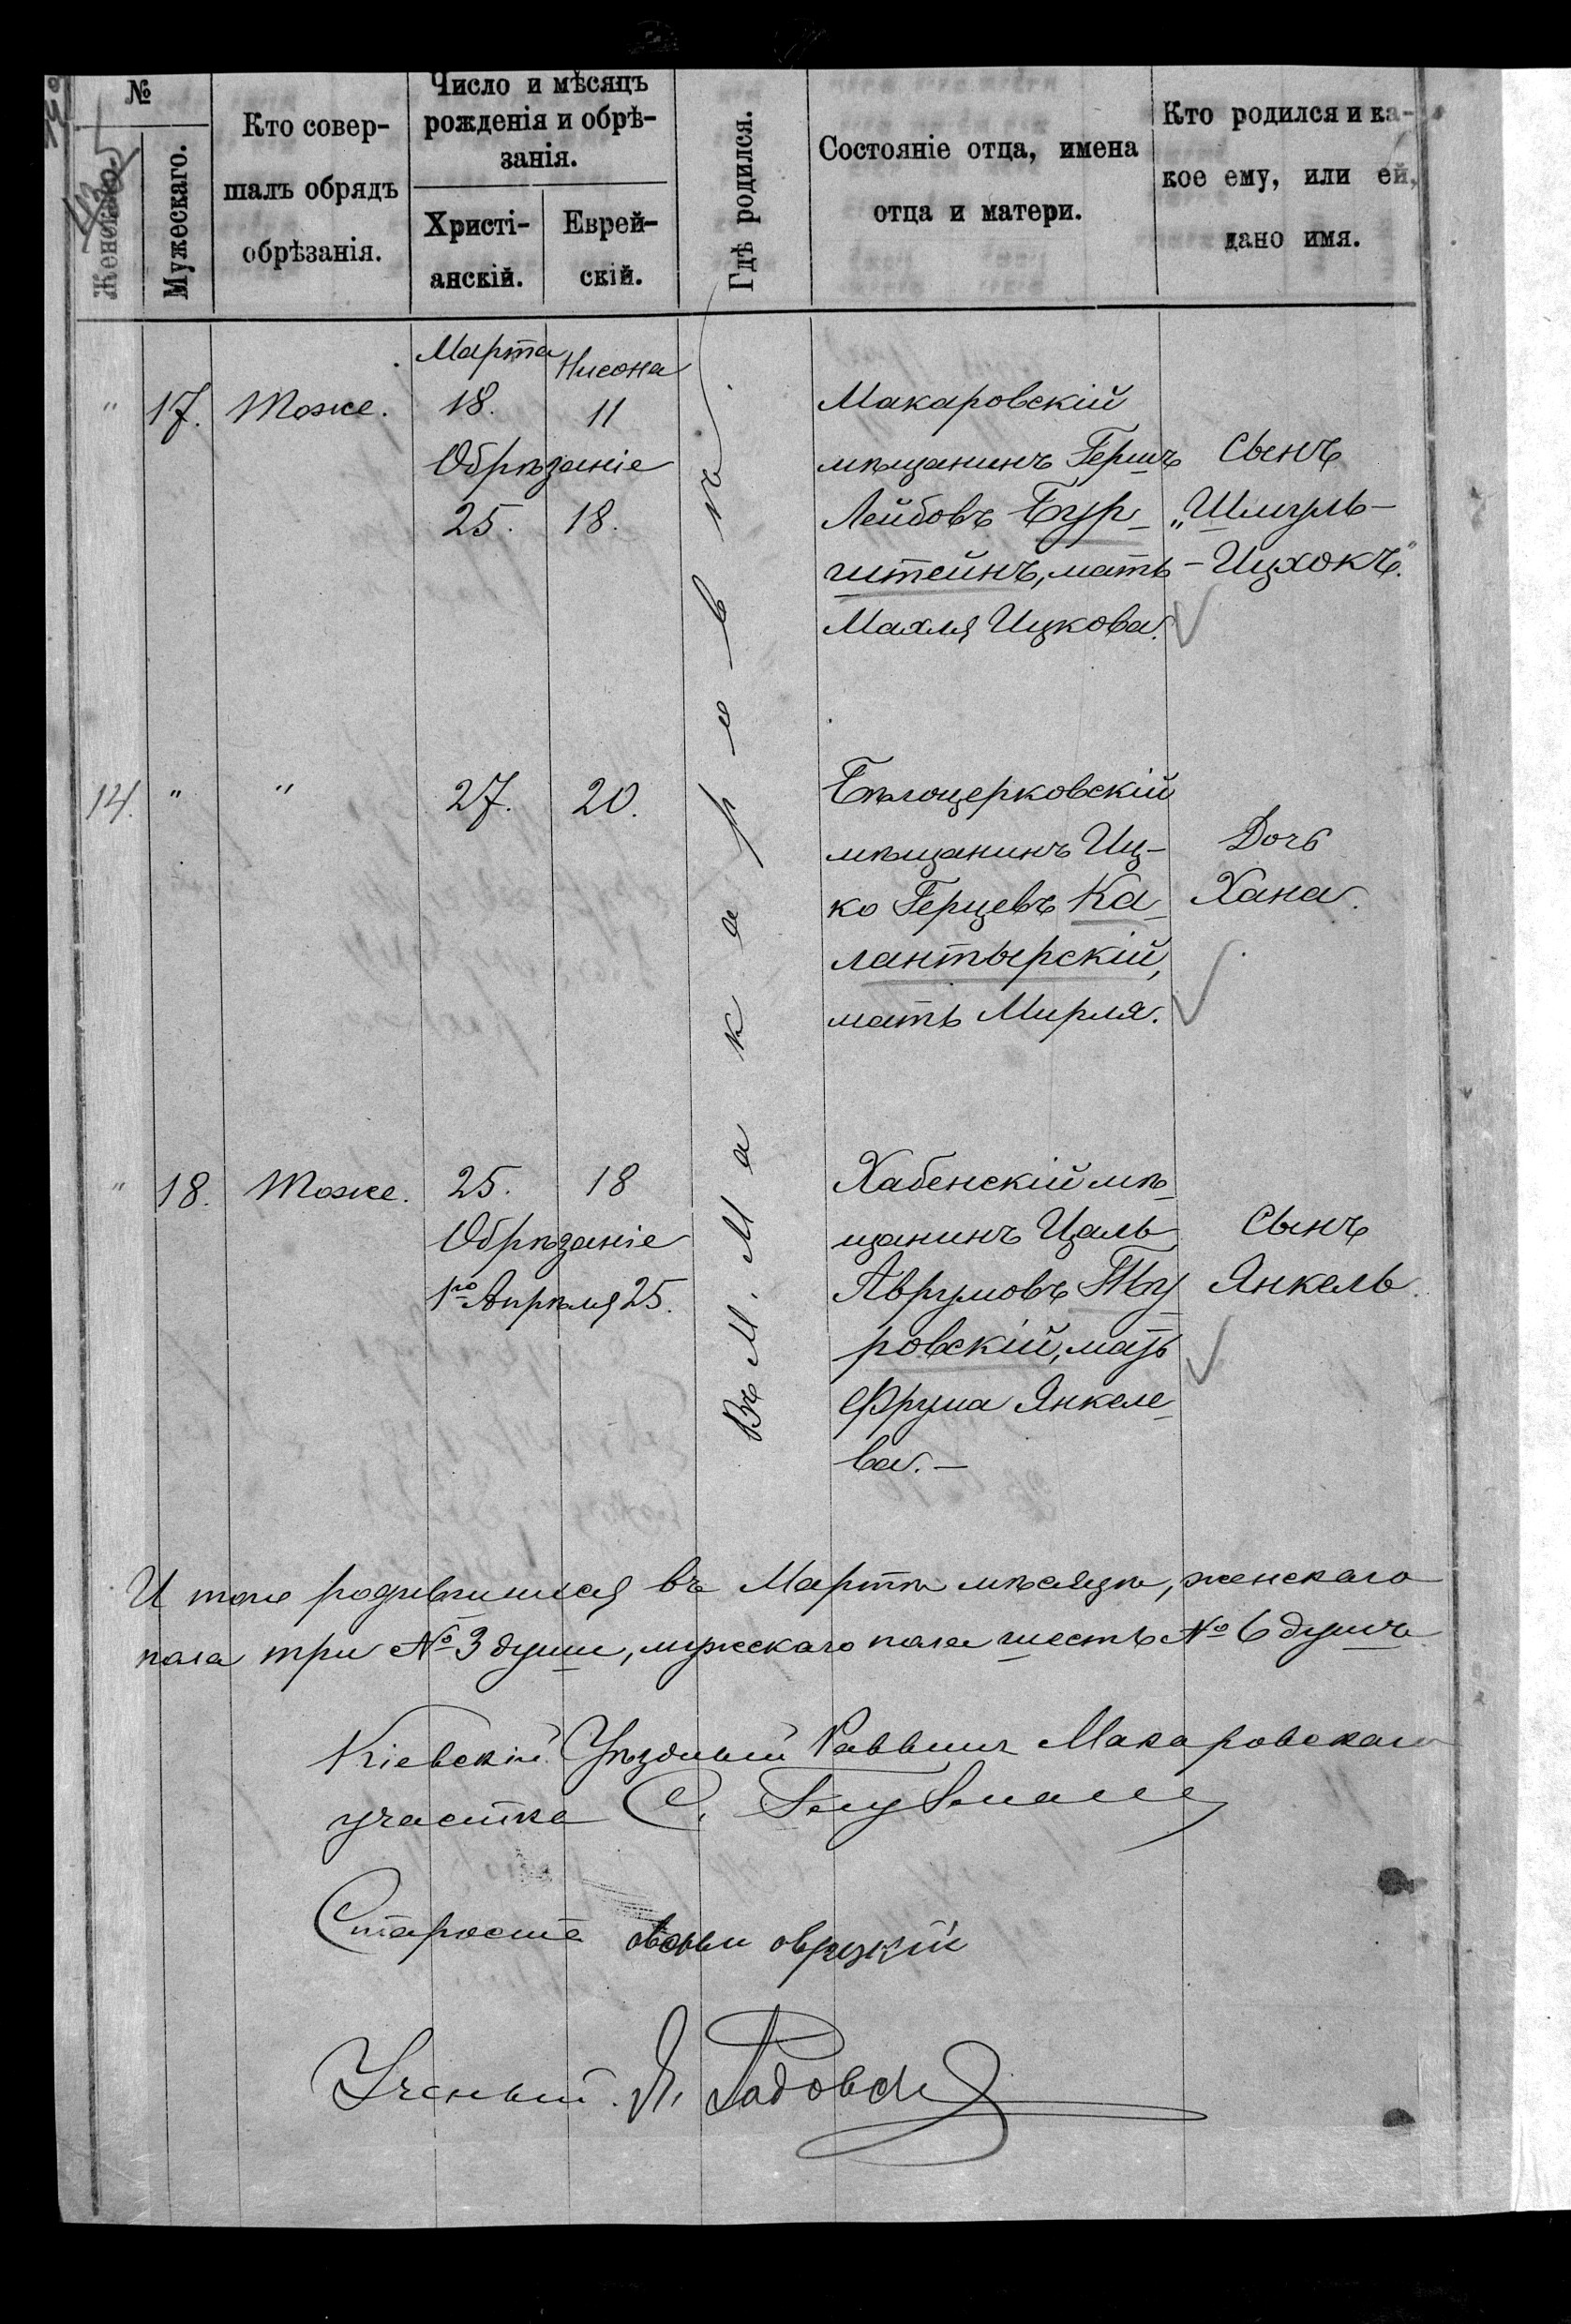 №
Женскаго.
Мужескаго.
Кто совер-
шалъ обрядъ
обрѣзанія.
Число и мѣсяцъ
рожденія и обрѣ-
занія.
Христі-
анскій.
Еврей-
скій.
Гдѣ родился.
Состояніе отца, имена
отца и матери.
Кто родился и ка-
кое ему, или ей,
дано имя.
Въ М. Макаровѣ.
Марта Нисона
" 17. Тоже. 18. 11
Обрѣзаніе
25. 18.
Макаровскій
мѣщанинъ Гершъ
Лейбовъ Бур-
штейнъ, мать
Махля Ицкова.
Сынъ
„Шмуль-
-Ицхокъ"
14. " " 27. 20.
Бѣлоцерковскій
мѣщанинъ Иц-
ко Герцевъ Ка-
лантырскій,
мать Мирля.
Дочь
Хана.
" 18. Тоже. 25. 18
Обрѣзаніе
1го Апрѣля 25.
Хабенскій мѣ-
щанинъ Цаль
Аврумовъ Ту-
ровскій, мать
Фрума Янкеле-
ва.-
Сынъ
Янкель.
Итого родившихся въ Мартѣ мѣсяцѣ, женскаго
пола три № 3 души, мужескаго пола шесть № 6 душъ
Кіевскій Уѣздный Раввинъ Макаровскаго
участка С.
Староста
Ученый